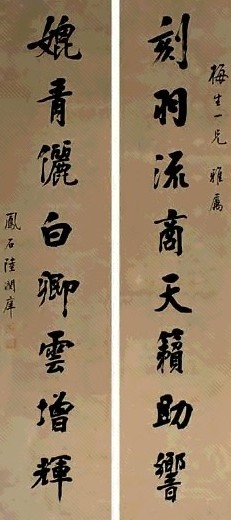 梅生一兄 雅属
刻羽流商天籟助響
媲青儷白卿雲增輝
鳳石陸潤庠